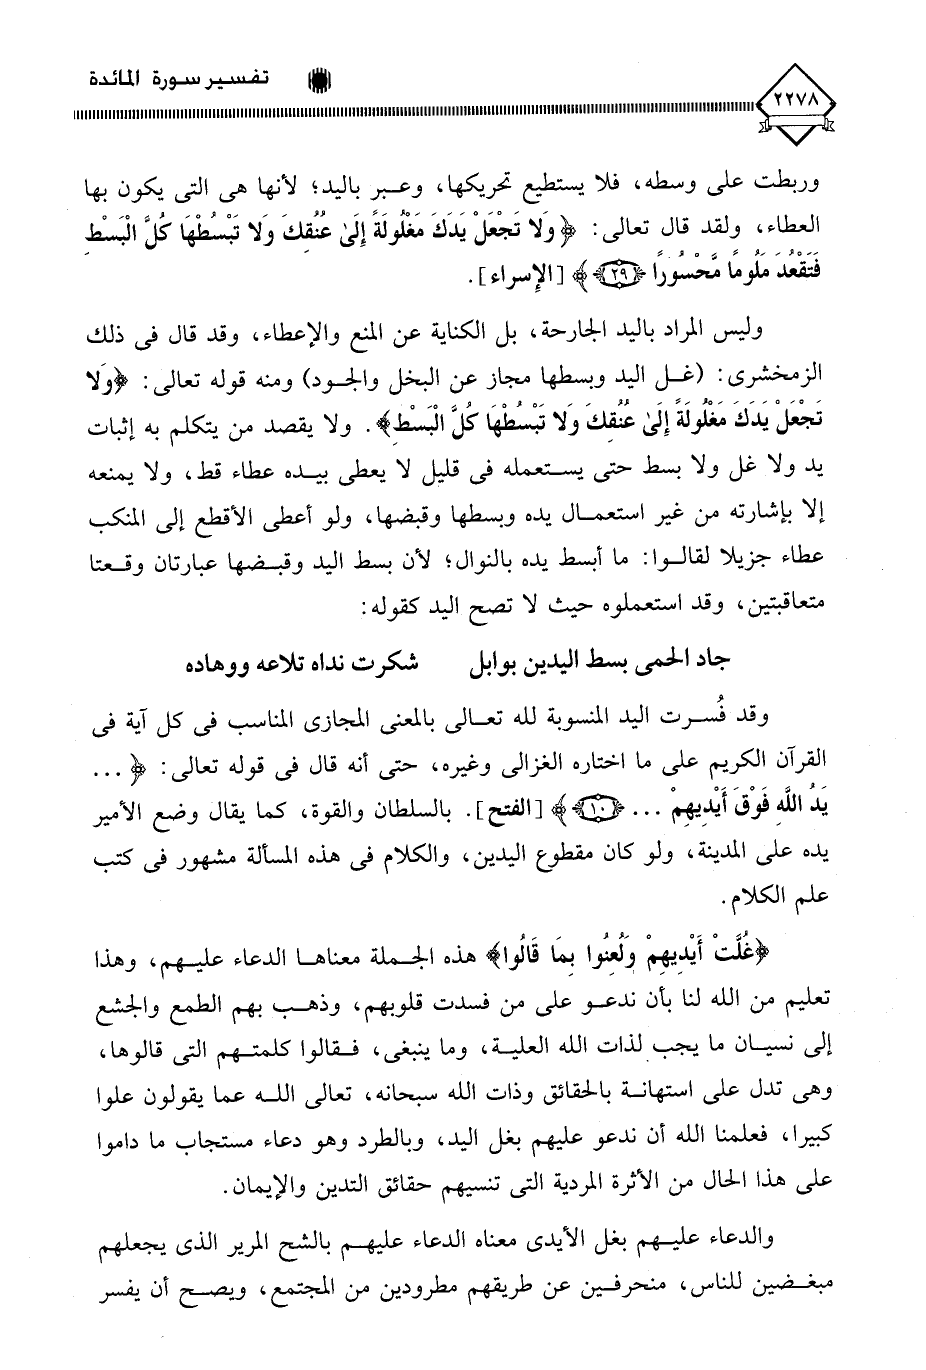 تفسير سورة المائدة
٢٢٧٨
وربطت على وسطه، فلا يستطيع تحريكها، وعبر باليد؛ لأنها هى التى يكون بها
العطاء، ولقد قال تعالى: ﴿وَلا تَجْعَلْ يَدَكَ مَغْلُولَةً إِلَىٰ عُنُقِكَ وَلا تَبْسُطْهَا كُلَّ الْبَسْطِ
فَتَقْعُدَ مَلُومًا مَّحْسُورًا ﴿٢٩﴾﴾ [الإسراء].
وليس المراد باليد الجارحة، بل الكناية عن المنع والإعطاء، وقد قال فى ذلك
الزمخشرى: (غل اليد وبسطها مجاز عن البخل والجود) ومنه قوله تعالى: ﴿وَلا
تَجْعَلْ يَدَكَ مَغْلُولَةً إِلَىٰ عُنُقِكَ وَلا تَبْسُطْهَا كُلَّ الْبَسْطِ﴾. ولا يقصد من يتكلم به إثبات
يد ولا غل ولا بسط حتى يستعمله فى قليل لا يعطى بيده عطاء قط، ولا يمنعه
إلا بإشارته من غير استعمال يده وبسطها وقبضها، ولو أعطى الأقطع إلى المنكب
عطاء جزيلا لقالوا: ما أبسط يده بالنوال؛ لأن بسط اليد وقبضها عبارتان وقعتا
متعاقبتين، وقد استعملوه حيث لا تصح اليد كقوله:
جاد الحمى بسط اليدين بوابل شكرت نداه تلاعه ووهاده
وقد فُسرت اليد المنسوبة لله تعالى بالمعنى المجازى المناسب فى كل آية فى
القرآن الكريم على ما اختاره الغزالى وغيره، حتى أنه قال فى قوله تعالى: ﴿...
يَدُ اللَّهِ فَوْقَ أَيْدِيهِمْ ... ﴿١٠﴾﴾ [الفتح]. بالسلطان والقوة، كما يقال وضع الأمير
يده على المدينة، ولو كان مقطوع اليدين، والكلام فى هذه المسألة مشهور فى كتب
علم الكلام.
﴿غُلَّتْ أَيْدِيهِمْ وَلُعِنُوا بِمَا قَالُوا﴾ هذه الجملة معناها الدعاء عليهم، وهذا
تعليم من الله لنا بأن ندعو على من فسدت قلوبهم، وذهب بهم الطمع والجشع
إلى نسيان ما يجب لذات الله العلية، وما ينبغى، فقالوا كلمتهم التى قالوها،
وهى تدل على استهانة بالحقائق وذات الله سبحانه، تعالى الله عما يقولون علوا
كبيرا، فعلمنا الله أن ندعو عليهم بغل اليد، وبالطرد وهو دعاء مستجاب ما داموا
على هذا الحال من الأثرة المردية التى تنسيهم حقائق التدين والإيمان.
والدعاء عليهم بغل الأيدى معناه الدعاء عليهم بالشح المرير الذى يجعلهم
مبغضين للناس، منحرفين عن طريقهم مطرودين من المجتمع، ويصح أن يفسر